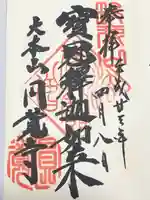 奉拝 平成廿三年
四月八日
寶冠釋迦如来
大本山円覚寺